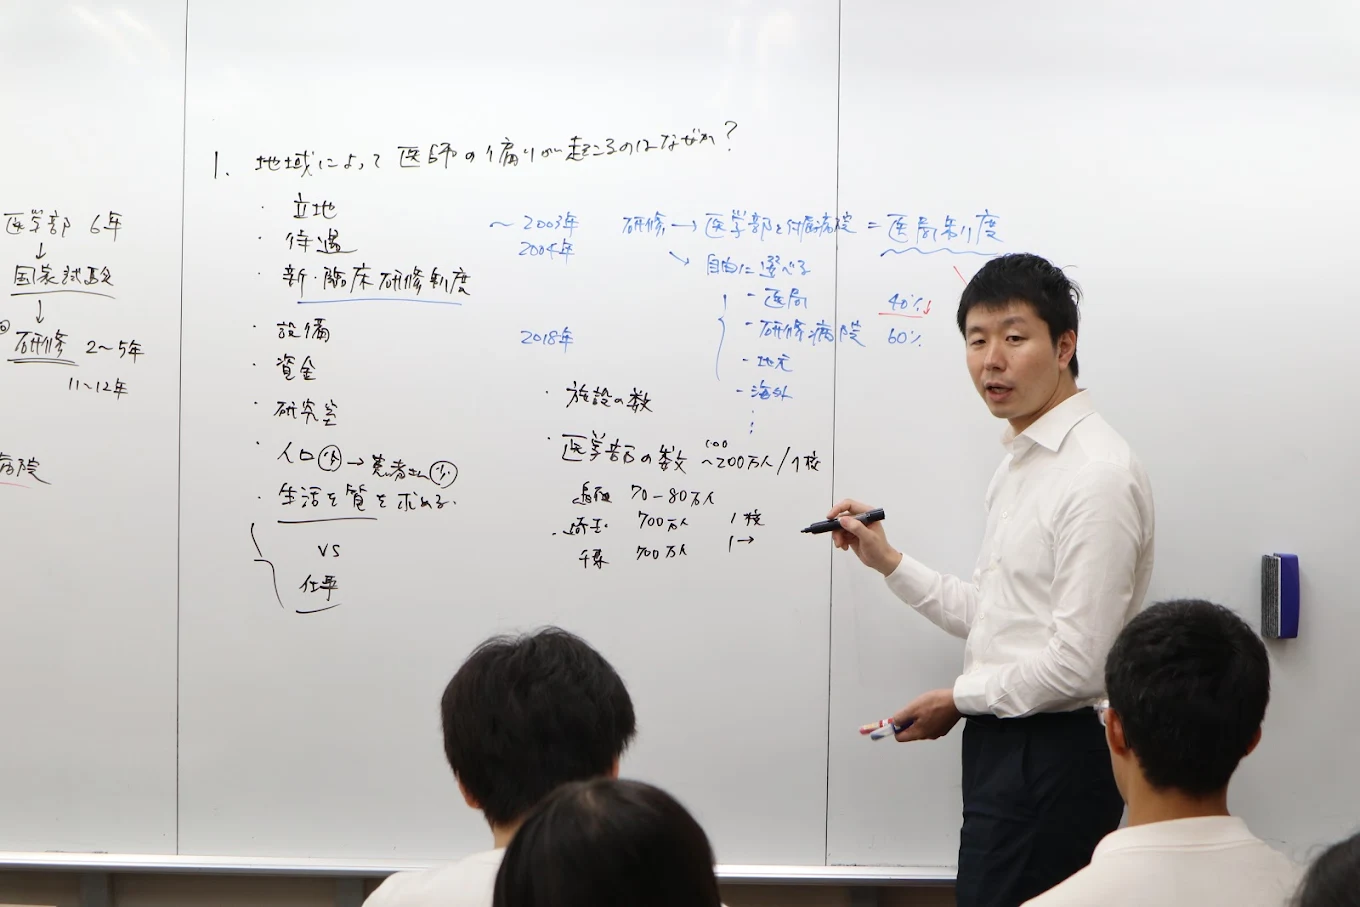 医学部 6年
↓
国家試験
↓
研修 2〜5年
11〜12年
病院
1. 地域によって医師の偏りが起こるのはなぜか?
・立地
・待遇
・新・臨床研修制度
・設備
・資金
・研究室
・人口㊛→患者さん㊛
・生活を質を求める.
vs
仕事
〜2003年 研修→医学部と付属病院=医局制度
2004年 ↘自由に選べる
- 医局 40%↓
- 研修病院 60%
2018年
- 地元
- 海外
⋮
・施設の数
・医学部の数 100〜200万人/1校
島根 70-80万人
・埼玉 700万人 1校
千葉 700万人 1→